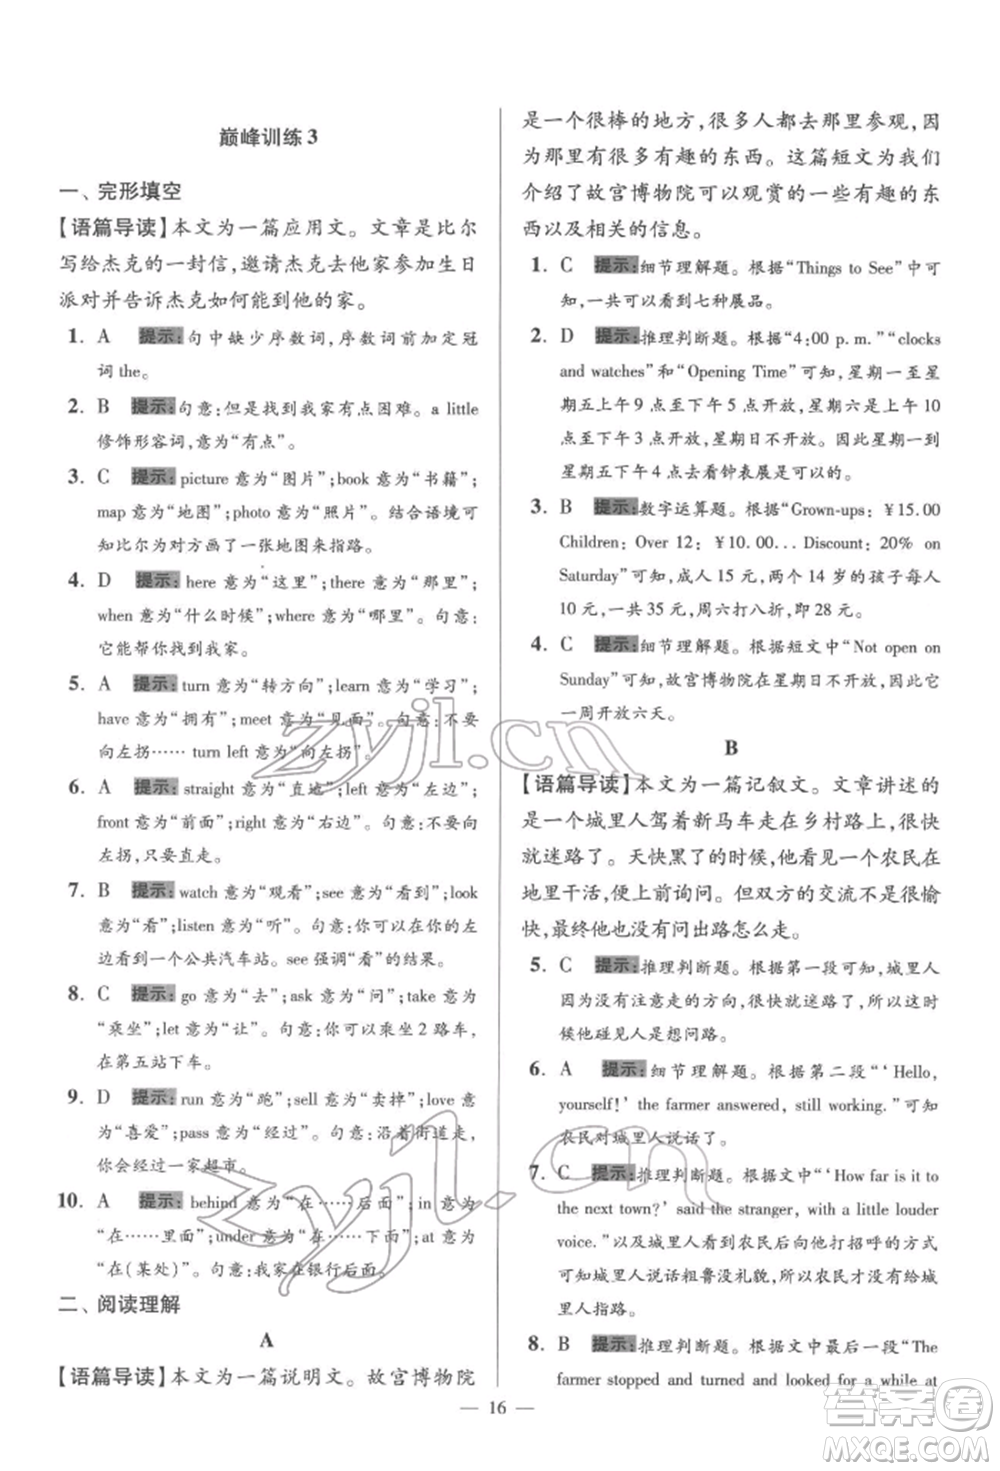 巅峰训练 3
一、完形填空
【语篇导读】本文为一篇应用文。文章是比尔
写给杰克的一封信，邀请杰克去他家参加生日
派对并告诉杰克如何能到他的家。
1. A 提示:句中缺少序数词，序数词前加定冠
词 the。
2. B 提示:句意:但是找到我家有点困难。a little
修饰形容词，意为“有点”。
3. C 提示:picture 意为“图片”;book 意为“书籍”;
map 意为“地图”;photo 意为“照片”。结合语境可
知比尔为对方画了一张地图来指路。
4. D 提示:here 意为“这里”;there 意为“那里”;
when 意为“什么时候”;where 意为“哪里”。句意:
它能帮你找到我家。
5. A 提示:turn 意为“转方向”;learn 意为“学习”;
have 意为“拥有”;meet 意为“见面”。句意:不要
向左拐…… turn left 意为“向左拐”。
6. A 提示:straight 意为“直地”;left 意为“左边”;
front 意为“前面”;right 意为“右边”。句意:不要
左拐,只要直走。
7. B 提示:watch 意为“观看”;see 意为“看到”;look
意为“看”;listen 意为“听”。句意:你可以在你的左
边看到一个公共汽车站。see 强调“看”的结果。
8. C 提示:go 意为“去”;ask 意为“问”;take 意为
“乘坐”;let 意为“让”。句意:你可以乘坐 2 路车,
在第五站下车。
9. D 提示:run 意为“跑”;sell 意为“卖掉”;love 意
为“喜爱”;pass 意为“经过”。句意:沿着街道走,
你将会经过一家超市。
10. A 提示:behind 意为“在……后面”;in 意为
“在……里面”;under 意为“在……下面”;at 意为
“在(某处)”。句意:我家在银行后面。
二、阅读理解
A
【语篇导读】本文为一篇说明文。故宫博物院
是一个很棒的地方，很多人都去那里参观，因
为那里有很多有趣的东西。这篇短文为我们
介绍了故宫博物院可以观赏的一些有趣的东
西以及相关的信息。
1. C 提示:细节理解题。根据“Things to See”中可
知，一共可以看到七种展品。
2. D 提示:推理判断题。根据“4:00 p. m.”“clocks
and watches”和“Opening Time”可知,星期一至星
期五上午 9 点至下午 5 点开放,星期六是上午 10
点至下午 3 点开放,星期日不开放。因此星期一到
星期五下午 4 点去看钟表展是可以的。
3. B 提示:数字运算题。根据“Grown-ups: ￥15.00
Children: Over 12: ￥10.00... Discount: 20% on
Saturday”可知,成人 15 元,两个 14 岁的孩子每人
10 元,一共 35 元,周六打八折,即 28 元。
4. C 提示:细节理解题。根据短文中“Not open on
Sunday”可知,故宫博物院在星期日不开放,因此它
一周开放六天。
B
【语篇导读】本文为一篇记叙文。文章讲述的
是一个城里人驾着新马车走在乡村路上，很快
就迷路了。天快黑了的时候，他看见一个农民在
地里干活，便上前询问。但双方的交流不是很愉
快，最终他也没有问出路怎么走。
5. C 提示:推理判断题。根据第一段可知,城里人
因为没有注意走的方向,很快就迷路了,所以这时
候他碰见人是想问路。
6. A 提示:细节理解题。根据第二段“‘Hello,
yourself!’ the farmer answered, still working.”可知
农民对城里人说话了。
7. C 提示:推理判断题。根据文中“‘How far is it to
the next town?’ said the stranger, with a little louder
voice.”以及城里人与农民后面打招呼的方式可知,
他可能觉得城里人说话粗鲁没礼貌,所以农民不给城
里人指路。
8. B 提示:推理判断题。根据文中最后一段“The
farmer stopped and turned and looked for a while at
16
zyjl.cn
zyjl.cn
答案圈
MXQE.COM